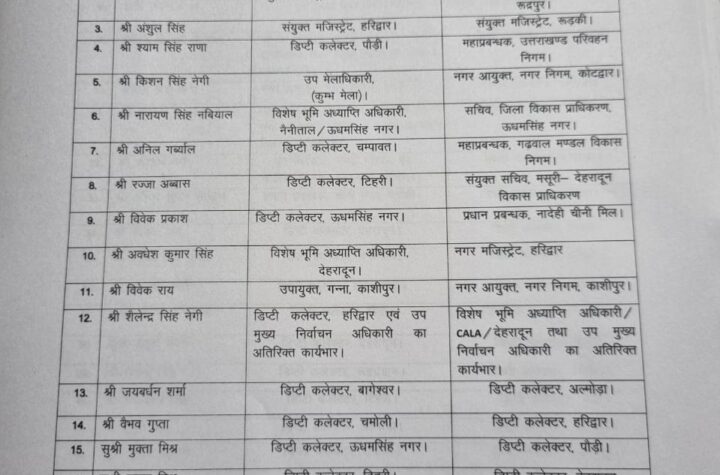 रूद्रपुर।
3. श्री अंशुल सिंह संयुक्त मजिस्ट्रेट, हरिद्वार। संयुक्त मजिस्ट्रेट, रूड़की।
4. श्री श्याम सिंह राणा डिप्टी कलेक्टर, पौड़ी। महाप्रबन्धक, उत्तराखण्ड परिवहन
निगम।
5. श्री किशन सिंह नेगी उप मेलाधिकारी, नगर आयुक्त, नगर निगम, कोटद्वार।
(कुम्भ मेला)।
6. श्री नारायण सिंह नबियाल विशेष भूमि अध्याप्ति अधिकारी, सचिव, जिला विकास प्राधिकरण,
नैनीताल/ऊधमसिंह नगर। ऊधमसिंह नगर।
7. श्री अनिल गर्ब्याल डिप्टी कलेक्टर, चम्पावत। महाप्रबन्धक, गढ़वाल मण्डल विकास
निगम।
8. श्री रज्जा अब्बास डिप्टी कलेक्टर, टिहरी। संयुक्त सचिव, मसूरी– देहरादून
विकास प्राधिकरण
9. श्री विवेक प्रकाश डिप्टी कलेक्टर, ऊधमसिंह नगर। प्रधान प्रबन्धक, नादेही चीनी मिल।
10. श्री अवधेश कुमार सिंह विशेष भूमि अध्याप्ति अधिकारी, नगर मजिस्ट्रेट, हरिद्वार
देहरादून।
11. श्री विवेक राय उपायुक्त, गन्ना, काशीपुर। नगर आयुक्त, नगर निगम, काशीपुर।
12. श्री शैलेन्द्र सिंह नेगी डिप्टी कलेक्टर, हरिद्वार एवं उप विशेष भूमि अध्याप्ति अधिकारी/
मुख्य निर्वाचन अधिकारी का CALA/देहरादून तथा उप मुख्य
अतिरिक्त कार्यभार। निर्वाचन अधिकारी का अतिरिक्त
कार्यभार।
13. श्री जयबर्धन शर्मा डिप्टी कलेक्टर, बागेश्वर। डिप्टी कलेक्टर, अल्मोड़ा।
14. श्री वैभव गुप्ता डिप्टी कलेक्टर, चमोली। डिप्टी कलेक्टर, हरिद्वार।
15. सुश्री मुक्ता मिश्र डिप्टी कलेक्टर, ऊधमसिंह नगर। डिप्टी कलेक्टर, पौड़ी।